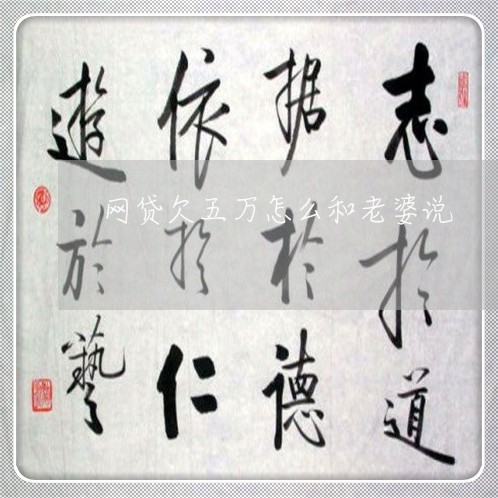 志於道
据於德
依於仁
遊於藝
网贷欠五万怎么和老婆说